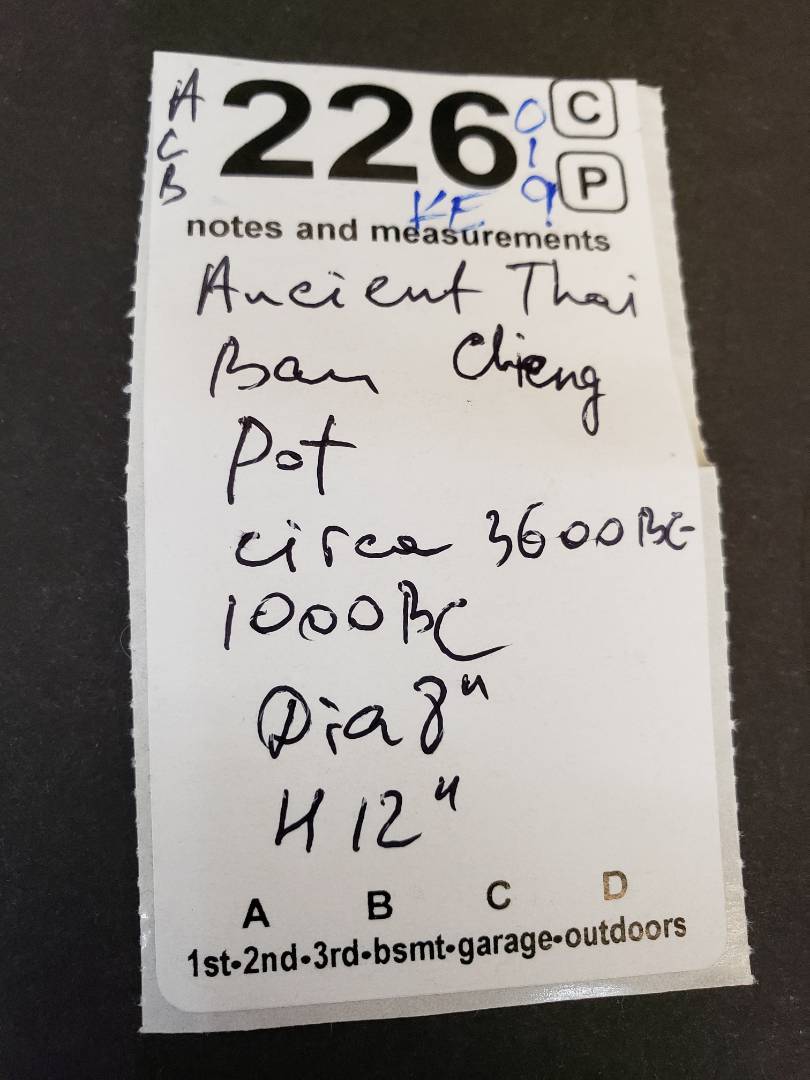 A
C
B
226
0
1
9
C
P
KE
notes and measurements
Ancient Thai
Ban Chieng
Pot
circa 3600BC-
1000BC
Dia 8"
H 12"
A B C D
1st•2nd•3rd•bsmt•garage•outdoors